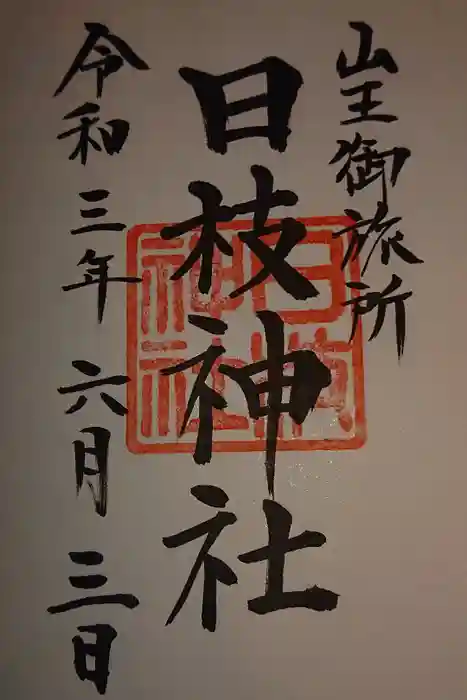 山王御旅所
日枝神社
令和三年六月三日
日枝神社